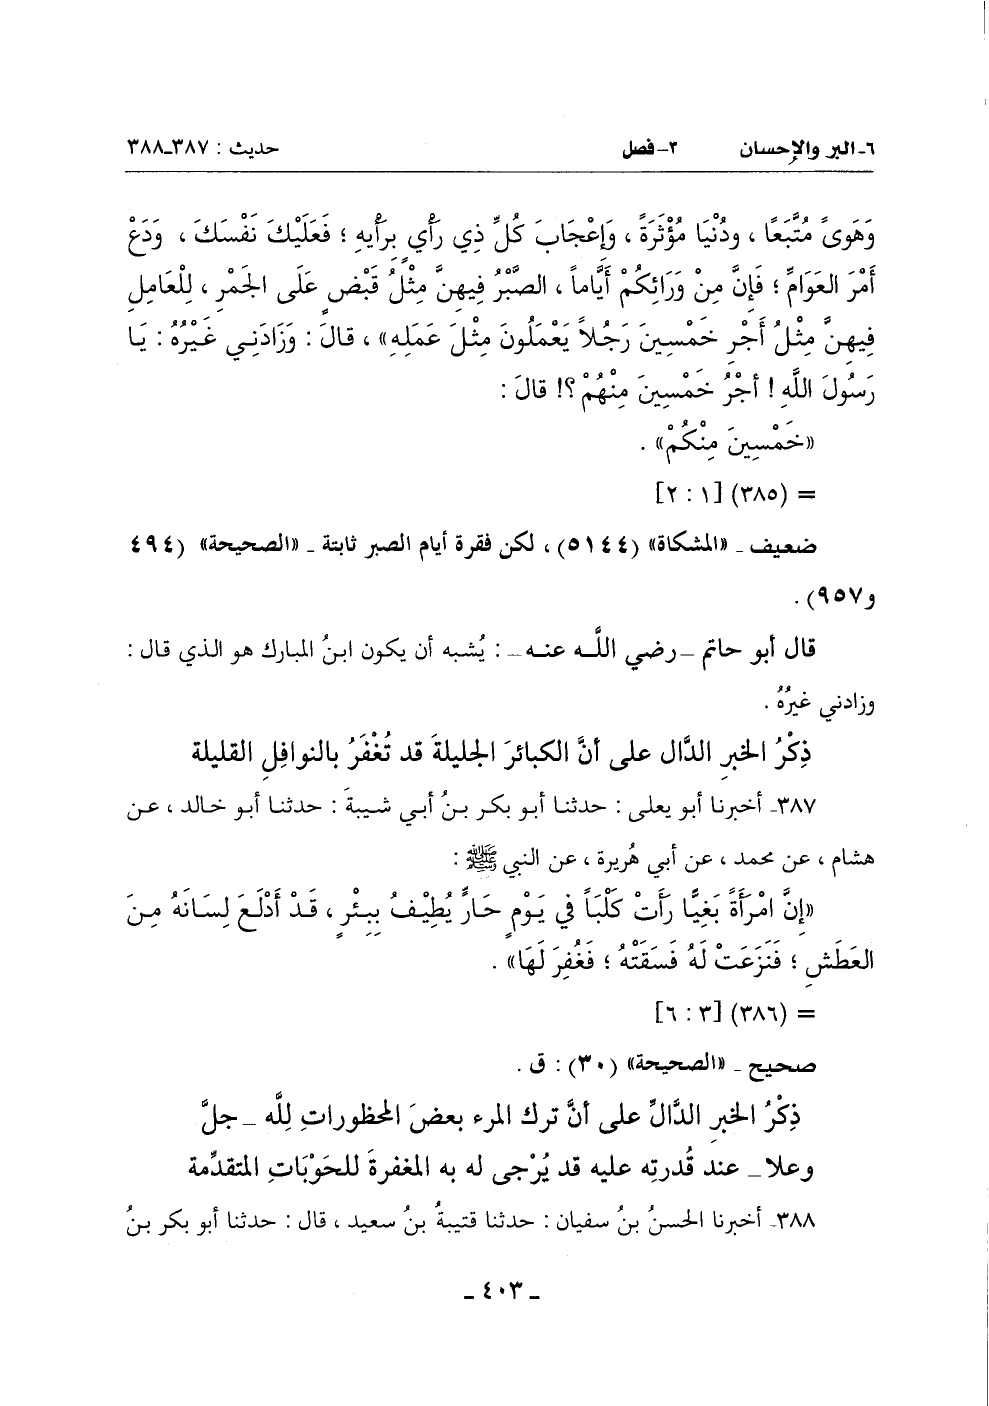 ٦ـ البر والإحسان ٢ـ فصل حديث : ٣٨٧ـ٣٨٨
وَهَوىً مُتَّبَعًا ، ودُنْيَا مُؤْثَرَةً ، وَإعْجَابَ كُلِّ ذِي رَأْيٍ بِرَأْيِهِ ؛ فَعَلَيْكَ نَفْسَكَ ، وَدَعْ
أَمْرَ العَوَامِّ ؛ فَإنَّ مِنْ وَرَائِكُمْ أَيَّاماً ، الصَّبْرُ فِيهِنَّ مِثْلُ قَبْضٍ عَلَى الجَمْرِ ، لِلْعَامِلِ
فِيهِنَّ مِثْلُ أَجْرِ خَمْسِينَ رَجُلاً يَعْمَلُونَ مِثْلَ عَمَلِهِ» ، قالَ : وَزَادَنِي غَيْرُهُ : يَا
رَسُولَ اللَّهِ ! أجْرُ خَمْسِينَ مِنْهُمْ ؟! قالَ :
«خَمْسِينَ مِنْكُمْ» .
= (٣٨٥) [١ : ٢]
ضعيف ـ «المشكاة» (٥١٤٤) ، لكن فقرة أيام الصبر ثابتة ـ «الصحيحة» (٤٩٤
و٩٥٧) .
قال أبو حاتم ـ رضي اللَّه عنه ـ : يُشبه أن يكون ابنُ المبارك هو الذي قال :
وزادني غيرُهُ .
ذِكْرُ الخبرِ الدَّال على أنَّ الكبائرَ الجليلةَ قد تُغْفَرُ بالنوافِلِ القليلة
٣٨٧ـ أخبرنا أبو يعلى : حدثنا أبو بكر بنُ أبي شيبةَ : حدثنا أبو خالد ، عن
هشام ، عن محمد ، عن أبي هُريرة ، عن النبي ﷺ :
«إنَّ امْرَأَةً بَغِيًّا رَأَتْ كَلْبَاً فِي يَوْمٍ حَارٍّ يُطِيْفُ بِبِئْرٍ ، قَدْ أَدْلَعَ لِسَانَهُ مِنَ
العَطَشِ ؛ فَنَزَعَتْ لَهُ فَسَقَتْهُ ؛ فَغُفِرَ لَهَا» .
= (٣٨٦) [٣ : ٦]
صحيح ـ «الصحيحة» (٣٠) : ق .
ذِكْرُ الخبرِ الدَّالِّ على أنَّ ترك المرء بعضَ المحظوراتِ لِلَّه ـ جلَّ
وعلا ـ عند قُدرتِه عليه قد يُرْجى له به المغفرةَ للحَوْبَاتِ المتقدِّمة
٣٨٨ـ أخبرنا الحسنُ بنُ سفيان : حدثنا قتيبةُ بنُ سعيد ، قال : حدثنا أبو بكر بنُ
ـ ٤٠٣ ـ